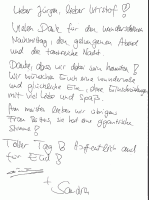 Lieber Jürgen, lieber Kristof!
Vielen Dank für den wunderschönen
Nachmittag, den gelungenen Abend
und die fantastische Nacht.
Danke, dass wir dabei sein konnten!
Wir wünschen Euch eine wundervolle
und glückliche Ehe, ohne Einschränkungen
mit viel Liebe und Spaß.
Am meisten lieben wir übrigens
Frau Bettis, so hat eine gigantische
Stimme!
Toller Tag! Hoffentlich auch
für Euch!
+ Sandra